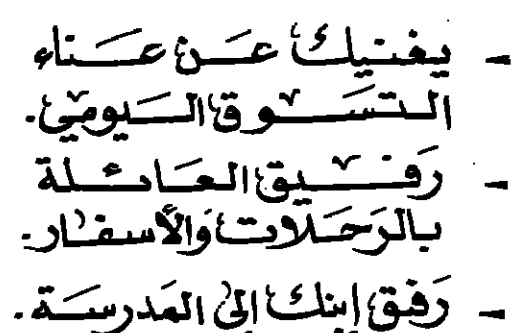 - يغنيك عَن عَناء
التسَوق اليَومي.
- رَفيق العَائلة
بالرَحَلات وَالأسفار.
- رَفق إبنك إلى المَدرسَة.